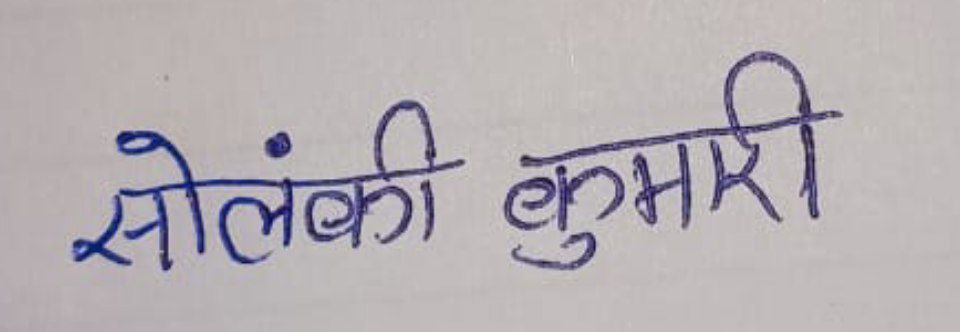 सोलंकी कुमारी